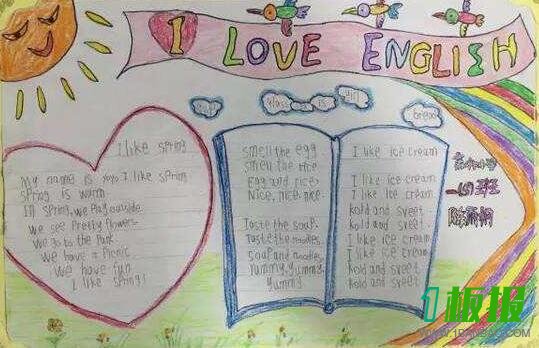 I LOVE ENGLISH
glass is
bread
I like spring
My name is yoyo I like spring
spring is warm
In spring, we play outside
we see pretty flowers
we go to the Park
we have a Picnic
we have fun
I like spring!
smell the egg.
smell the rice
Egg and rice,
Nice, nice, nice.
Taste the soup.
Taste the noodles.
soup and noodles,
Yummy, Yummy,
Yummy
I like ice cream.
I like ice cream.
I like ice cream.
kold and sveet.
kold and sveet.
I like ice cream
I like ice cream.
kold and sveet.
kold and sveet.
班
1板报
WWW.1BANBAO.COM